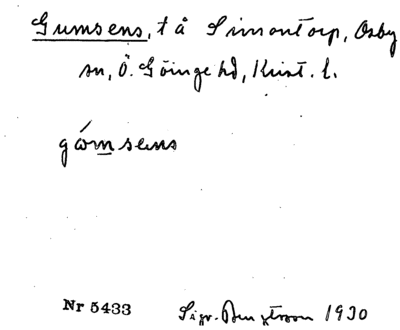 Gumsens, t å Simontorp, Osby
sn, Ö. Göinge hd, Krist. l.
gómsens
Nr 5433
Sigv. Bengtsson 1930